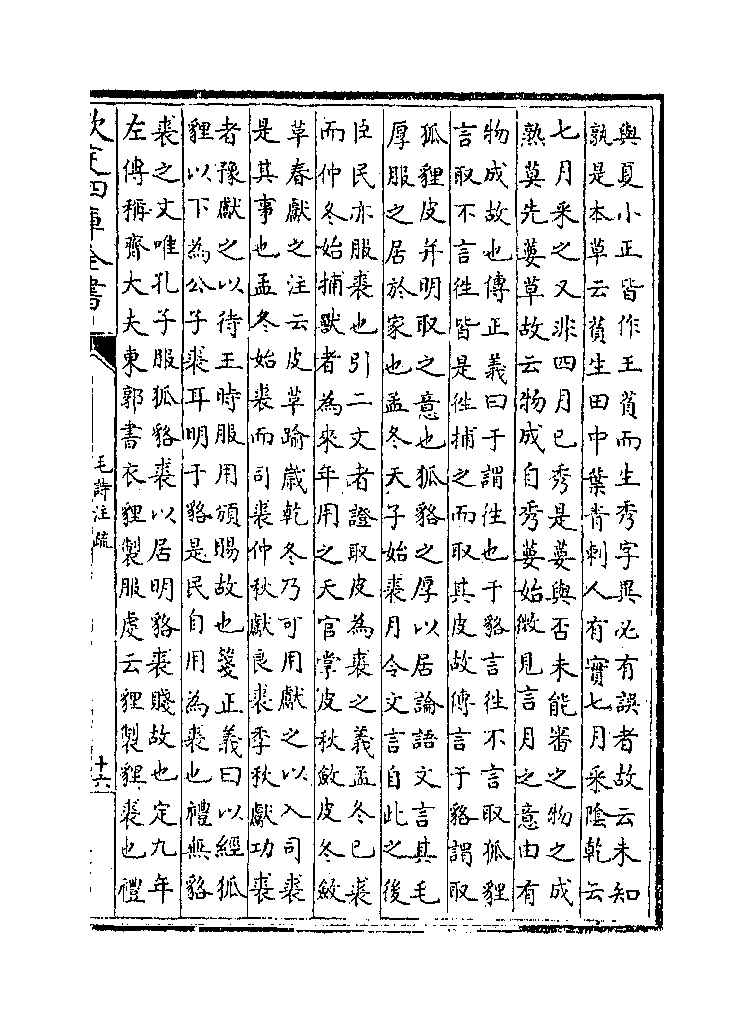 與夏小正皆作王萯而生秀字異必有誤者故云未知
孰是本草云萯生田中葉青刺人有實七月采陰乾云
七月采之又非四月已秀是葽與否未能審之物之成
熟莫先葽草故云物成自秀葽始微見言月之意由有
物成故也傳正義曰于謂徃也于貉言徃不言取狐貍
言取不言徃皆是徃捕之而取其皮故傳言于貉謂取
狐貍皮并明取之意也狐貉之厚以居論語文言其毛
厚服之居於家也孟冬天子始裘月令文言自此之後
臣民亦服裘也引二文者證取皮為裘之義孟冬已裘
而仲冬始捕獸者為來年用之天官掌皮秋斂皮冬斂
草春獻之注云皮草踰歲乾冬乃可用獻之以入司裘
是其事也孟冬始裘而司裘仲秋獻良裘季秋獻功裘
者豫獻之以待王時服用頒賜故也箋正義曰以經狐
貍以下為公子裘耳明于貉是民自用為裘也禮無貉
裘之文唯孔子服狐貉裘以居明貉裘賤故也定九年
左傳稱齊大夫東郭書衣貍製服虔云貍製貍裘也禮
欽定四庫全書
毛詩注疏
十六